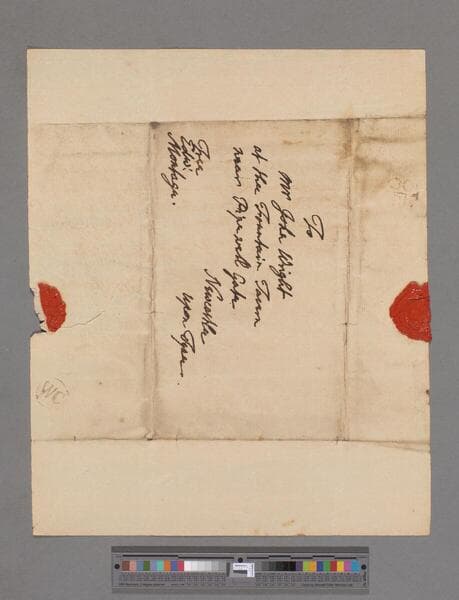 To
Mr John Wright
at the Fountain Tavern
near Pipewell Gate
Newcastle
upon Tyne.
Free
Edw:
Montagu.